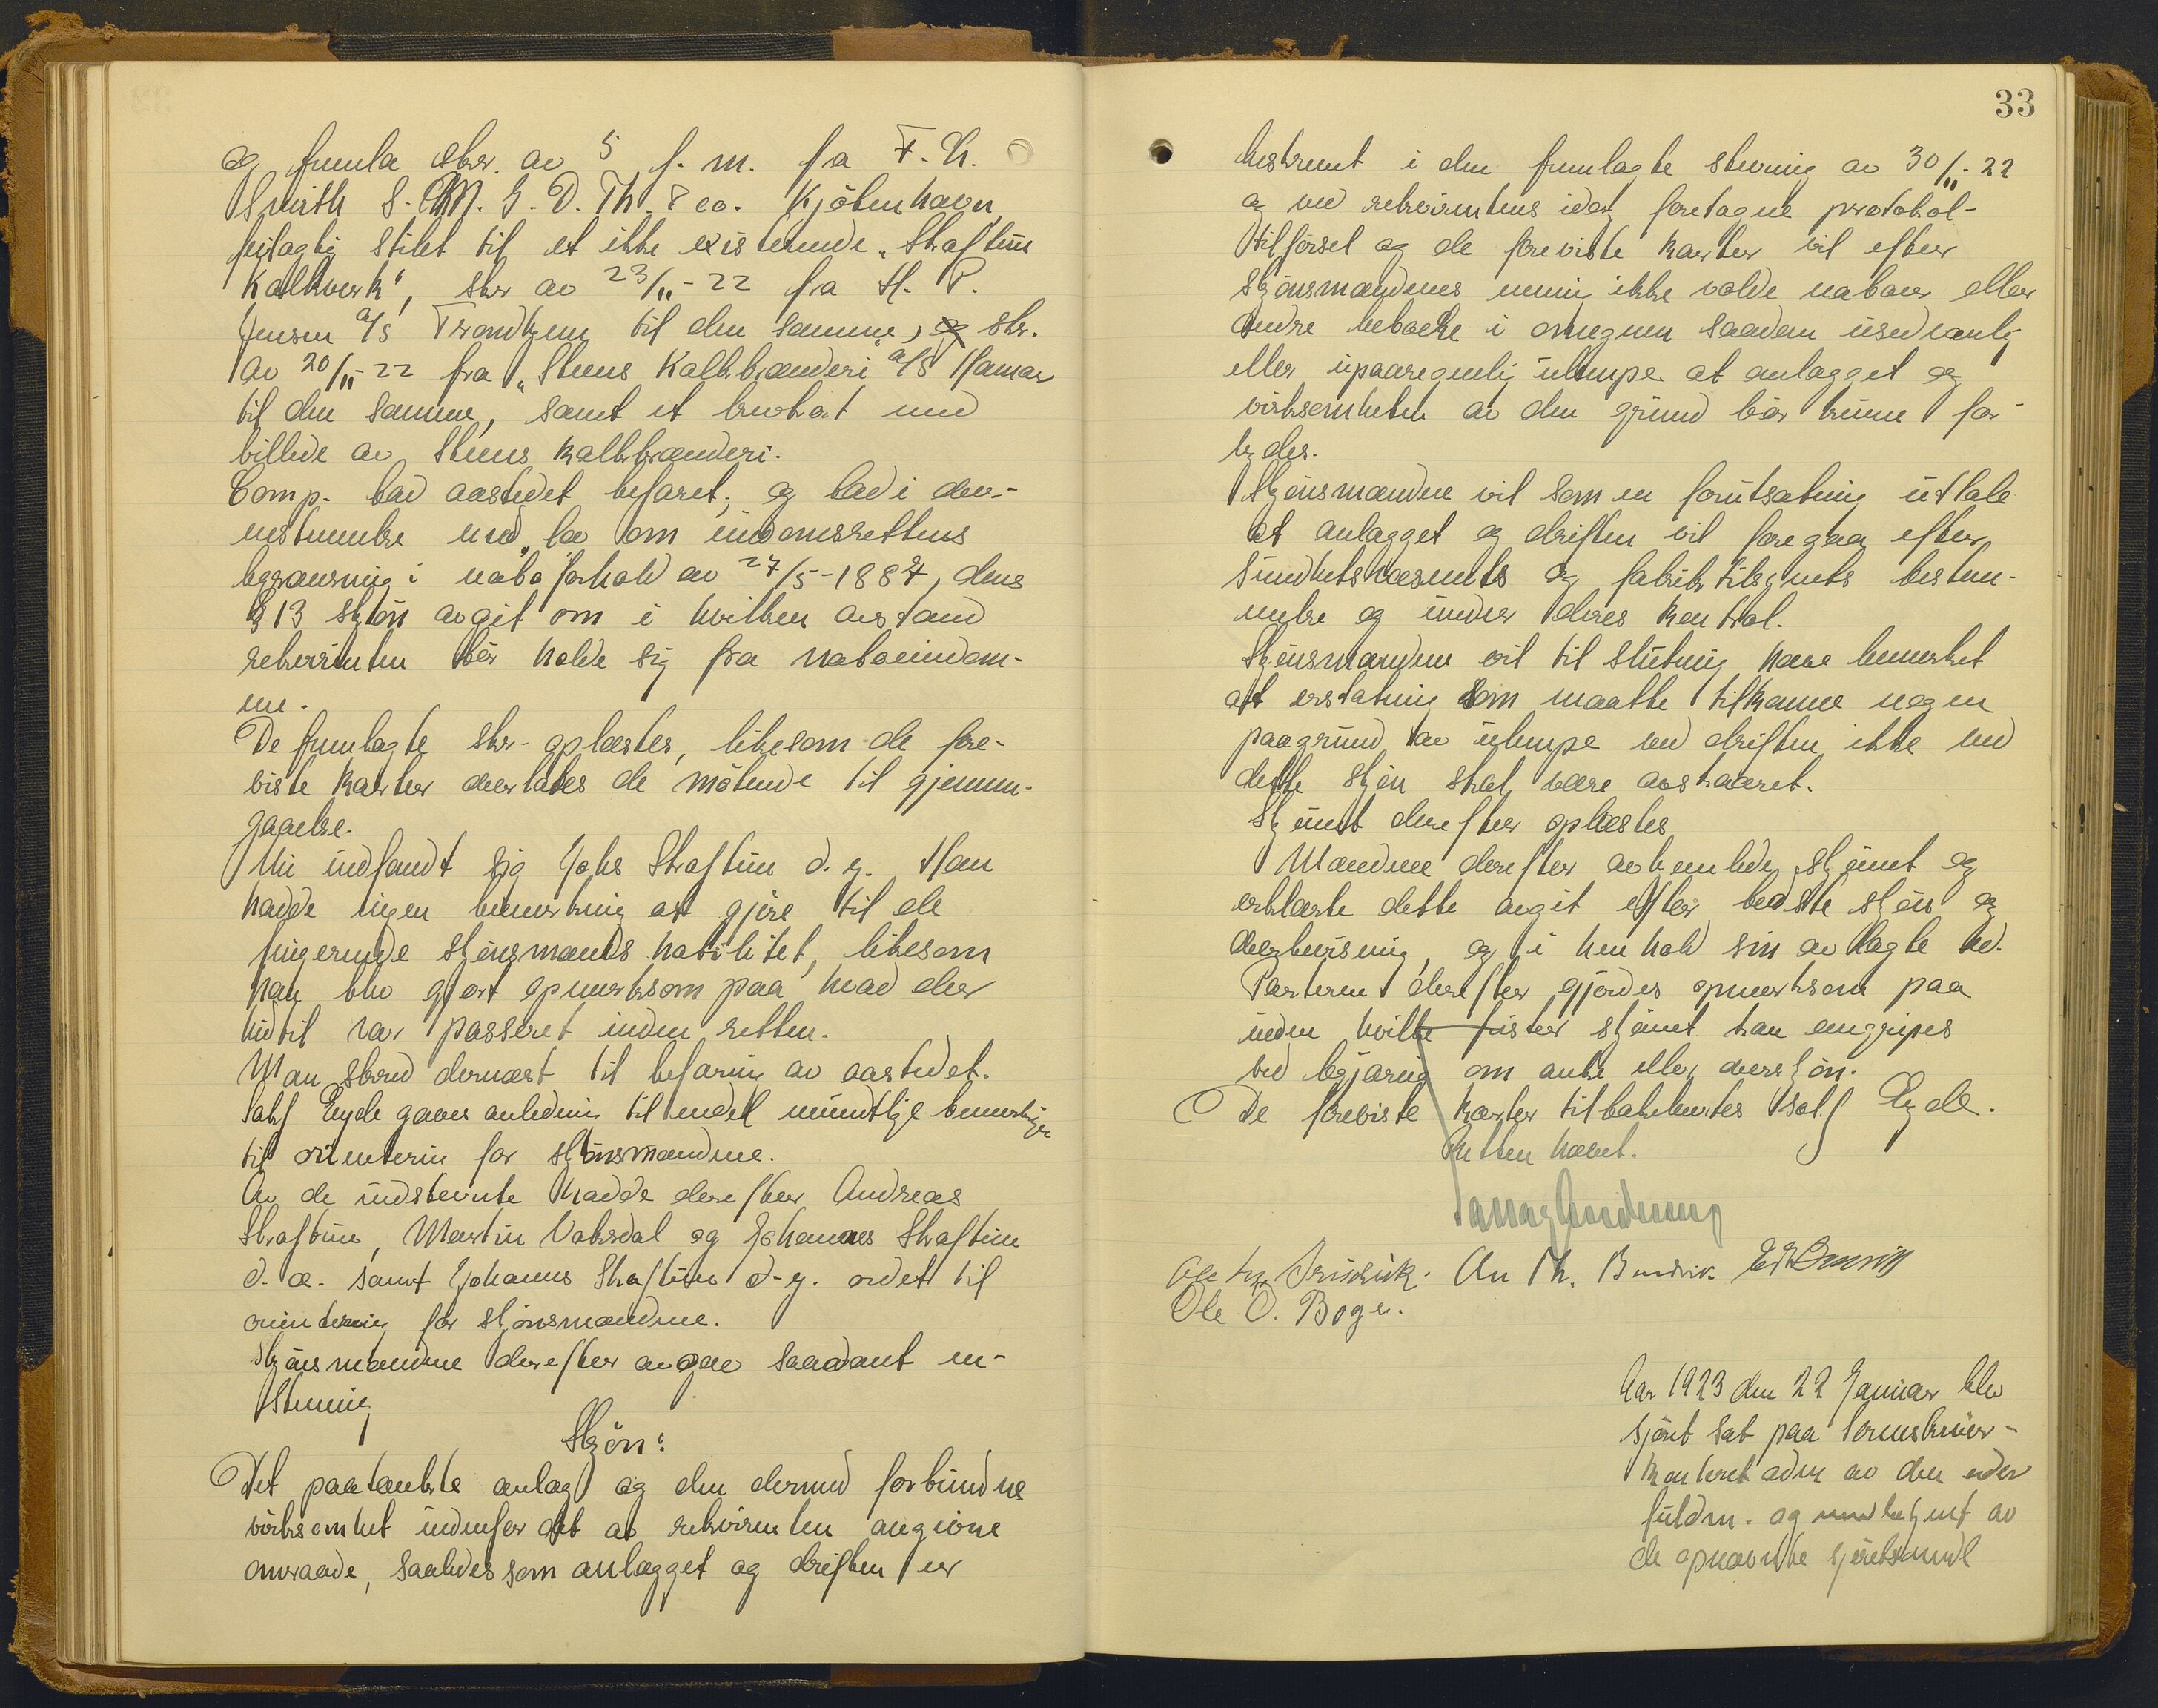 og fremla skr. av 5 f. m. fra F. L.
Smith S. M. G. D. Th. & co. Kjöbenhavn,
feilagtig stilet til et ikke existerende "Skaftun
Kalkverk", skr av 23/11-22 fra H. P.
Jensen a/s Trondhjem til den samme, og skr.
av 20/11-22 fra "Steens Kalkbrænderi a/s Hamar
til den samme, samt et brevkort med
billede av Steens kalkbrænderi.
Comp. bad aastedet befaret, og bad i over-
ensstemmelse med "lov om eiendomsrettens
begrænsning i naboforhold av 27/5-1887, dens
§ 13 skjön avgit om i hvilken avstand
rekvirenten bör holde sig fra naboeiendom-
me.
De fremlagte skr. oplæstes, likesom de fore-
viste karter overlates de mötende til gjennem-
gaaelse.
Nu indfandt sig Johs Skaftun d. y. Han
hadde ingen bemerkning at gjöre til de
fungerende skjönsmænds habilitet, likesom
han blev gjort opmerksom paa hvad der
hidtil var passeret inden retten.
Man skred dernæst til befaring av aastedet.
Sakf Eyde gaves anledning til endel mundtlige bemerkninger
til orientering for skjönsmændene.
Av de indstevnte hadde derefter Andreas
Skaftun, Martin Vaksdal og Johannes Skaftun
d. æ. samt Johannes Skaftun d. y. ordet til
orientering for skjönsmændene.
Skjönsmændene derefter avgav saadant en-
stemmig
Skjön:
Det paatænkte anlæg og den dermed forbundne
virksomhet indenfor det av rekvirenten angivne
omraade, saaledes som anlægget og driften er
33
beskrevet i den fremlagte stevning av 30/11-22
og ved rekvirentens idag foretagne protokol-
tilförsel og de foreviste karter vil efter
skjönsmændenes mening ikke volde naboer eller
andre beboere i omegnen saadan usedvanlig
eller upaaregnelig ulempe at anlægget og
virksomheten av den grund bör kunne for-
bydes.
Skjönsmændene vil som en forutsætning uttale
at anlægget og driften vil foregaa efter
sundhetsvæsenets og fabriktilsynets bestem-
melser og under deres kontrol.
Skjönsmændene vil til slutning have bemerket
at erstatning som maatte tilkomme nogen
paagrund av ulempe ved driften ikke ved
dette skjön skal være avskaaret.
Skjönnet derefter oplæstes
Mændene derefter avhemlede skjönnet og
erklærte dette avgit efter bedste skjön og
overbevisning, og i henhold sin avlagte ed.
Parterne derefter gjördes opmerksom paa
inden hvilke frister skjönnet kan angripes
ved begjæring om anke eller overskjön.
De foreviste karter tilbakelevertes sakf Eyde.
Retten hævet.
An Th. Bundvik
Ole O. Boge.
Aar 1923 den 22 Januar blev
sjöret sat paa Sorenskriver-
kontoret adm av den edsv
fuldm. og med betjent av
de opnævnte sjöretsmend